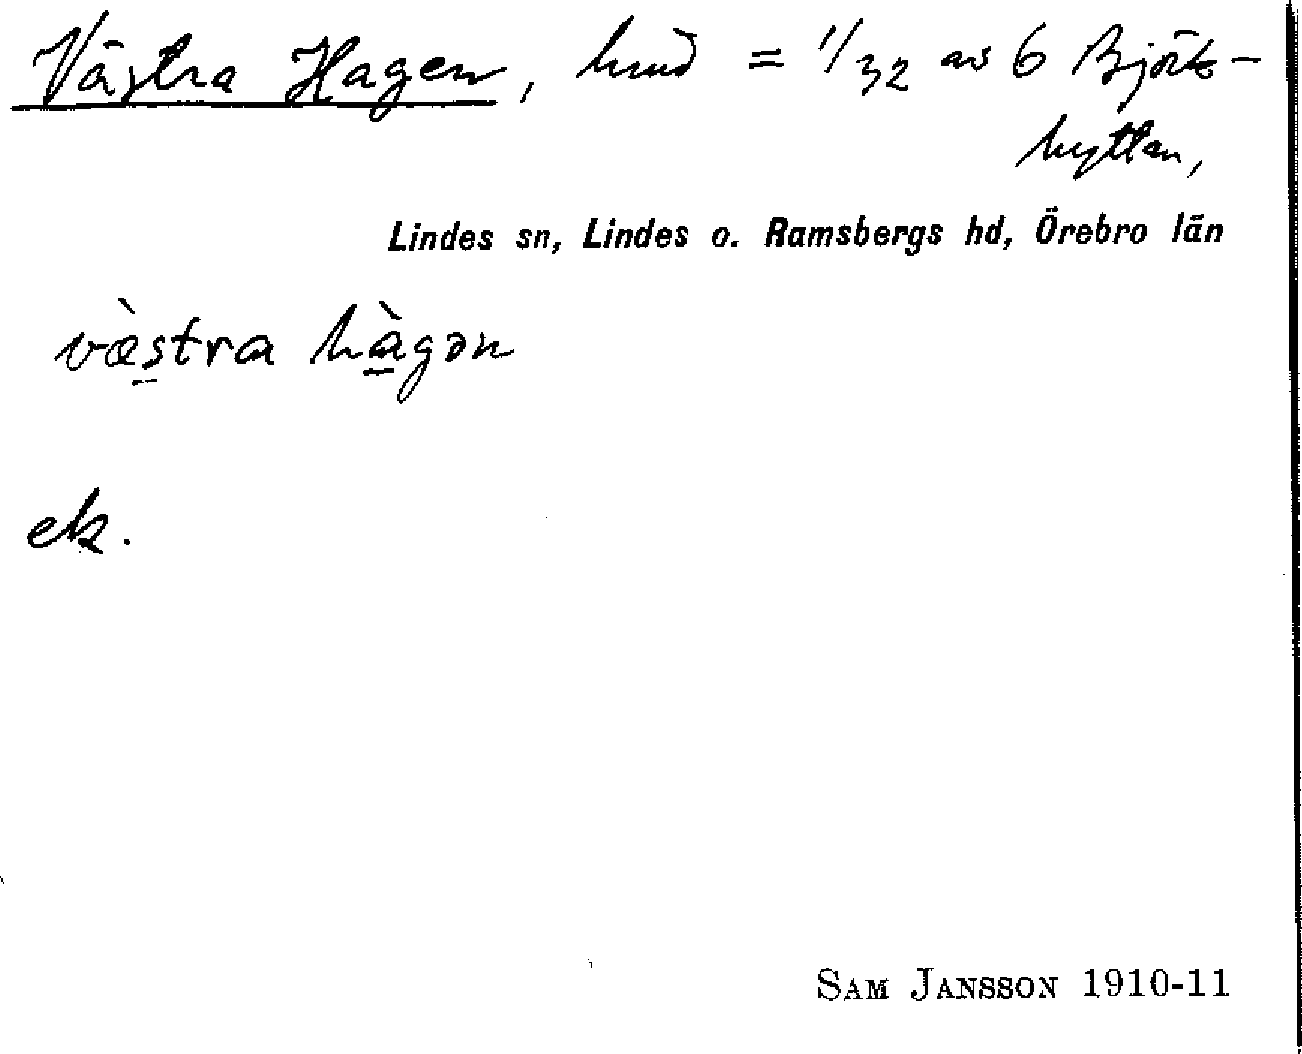 Västra Hagen, hmd = 1/32 av 6 Björk-
hyttan,
Lindes sn, Lindes o. Ramsbergs hd, Örebro län
væ̀s̲tra hà̲gən
ek.
SAM JANSSON 1910-11